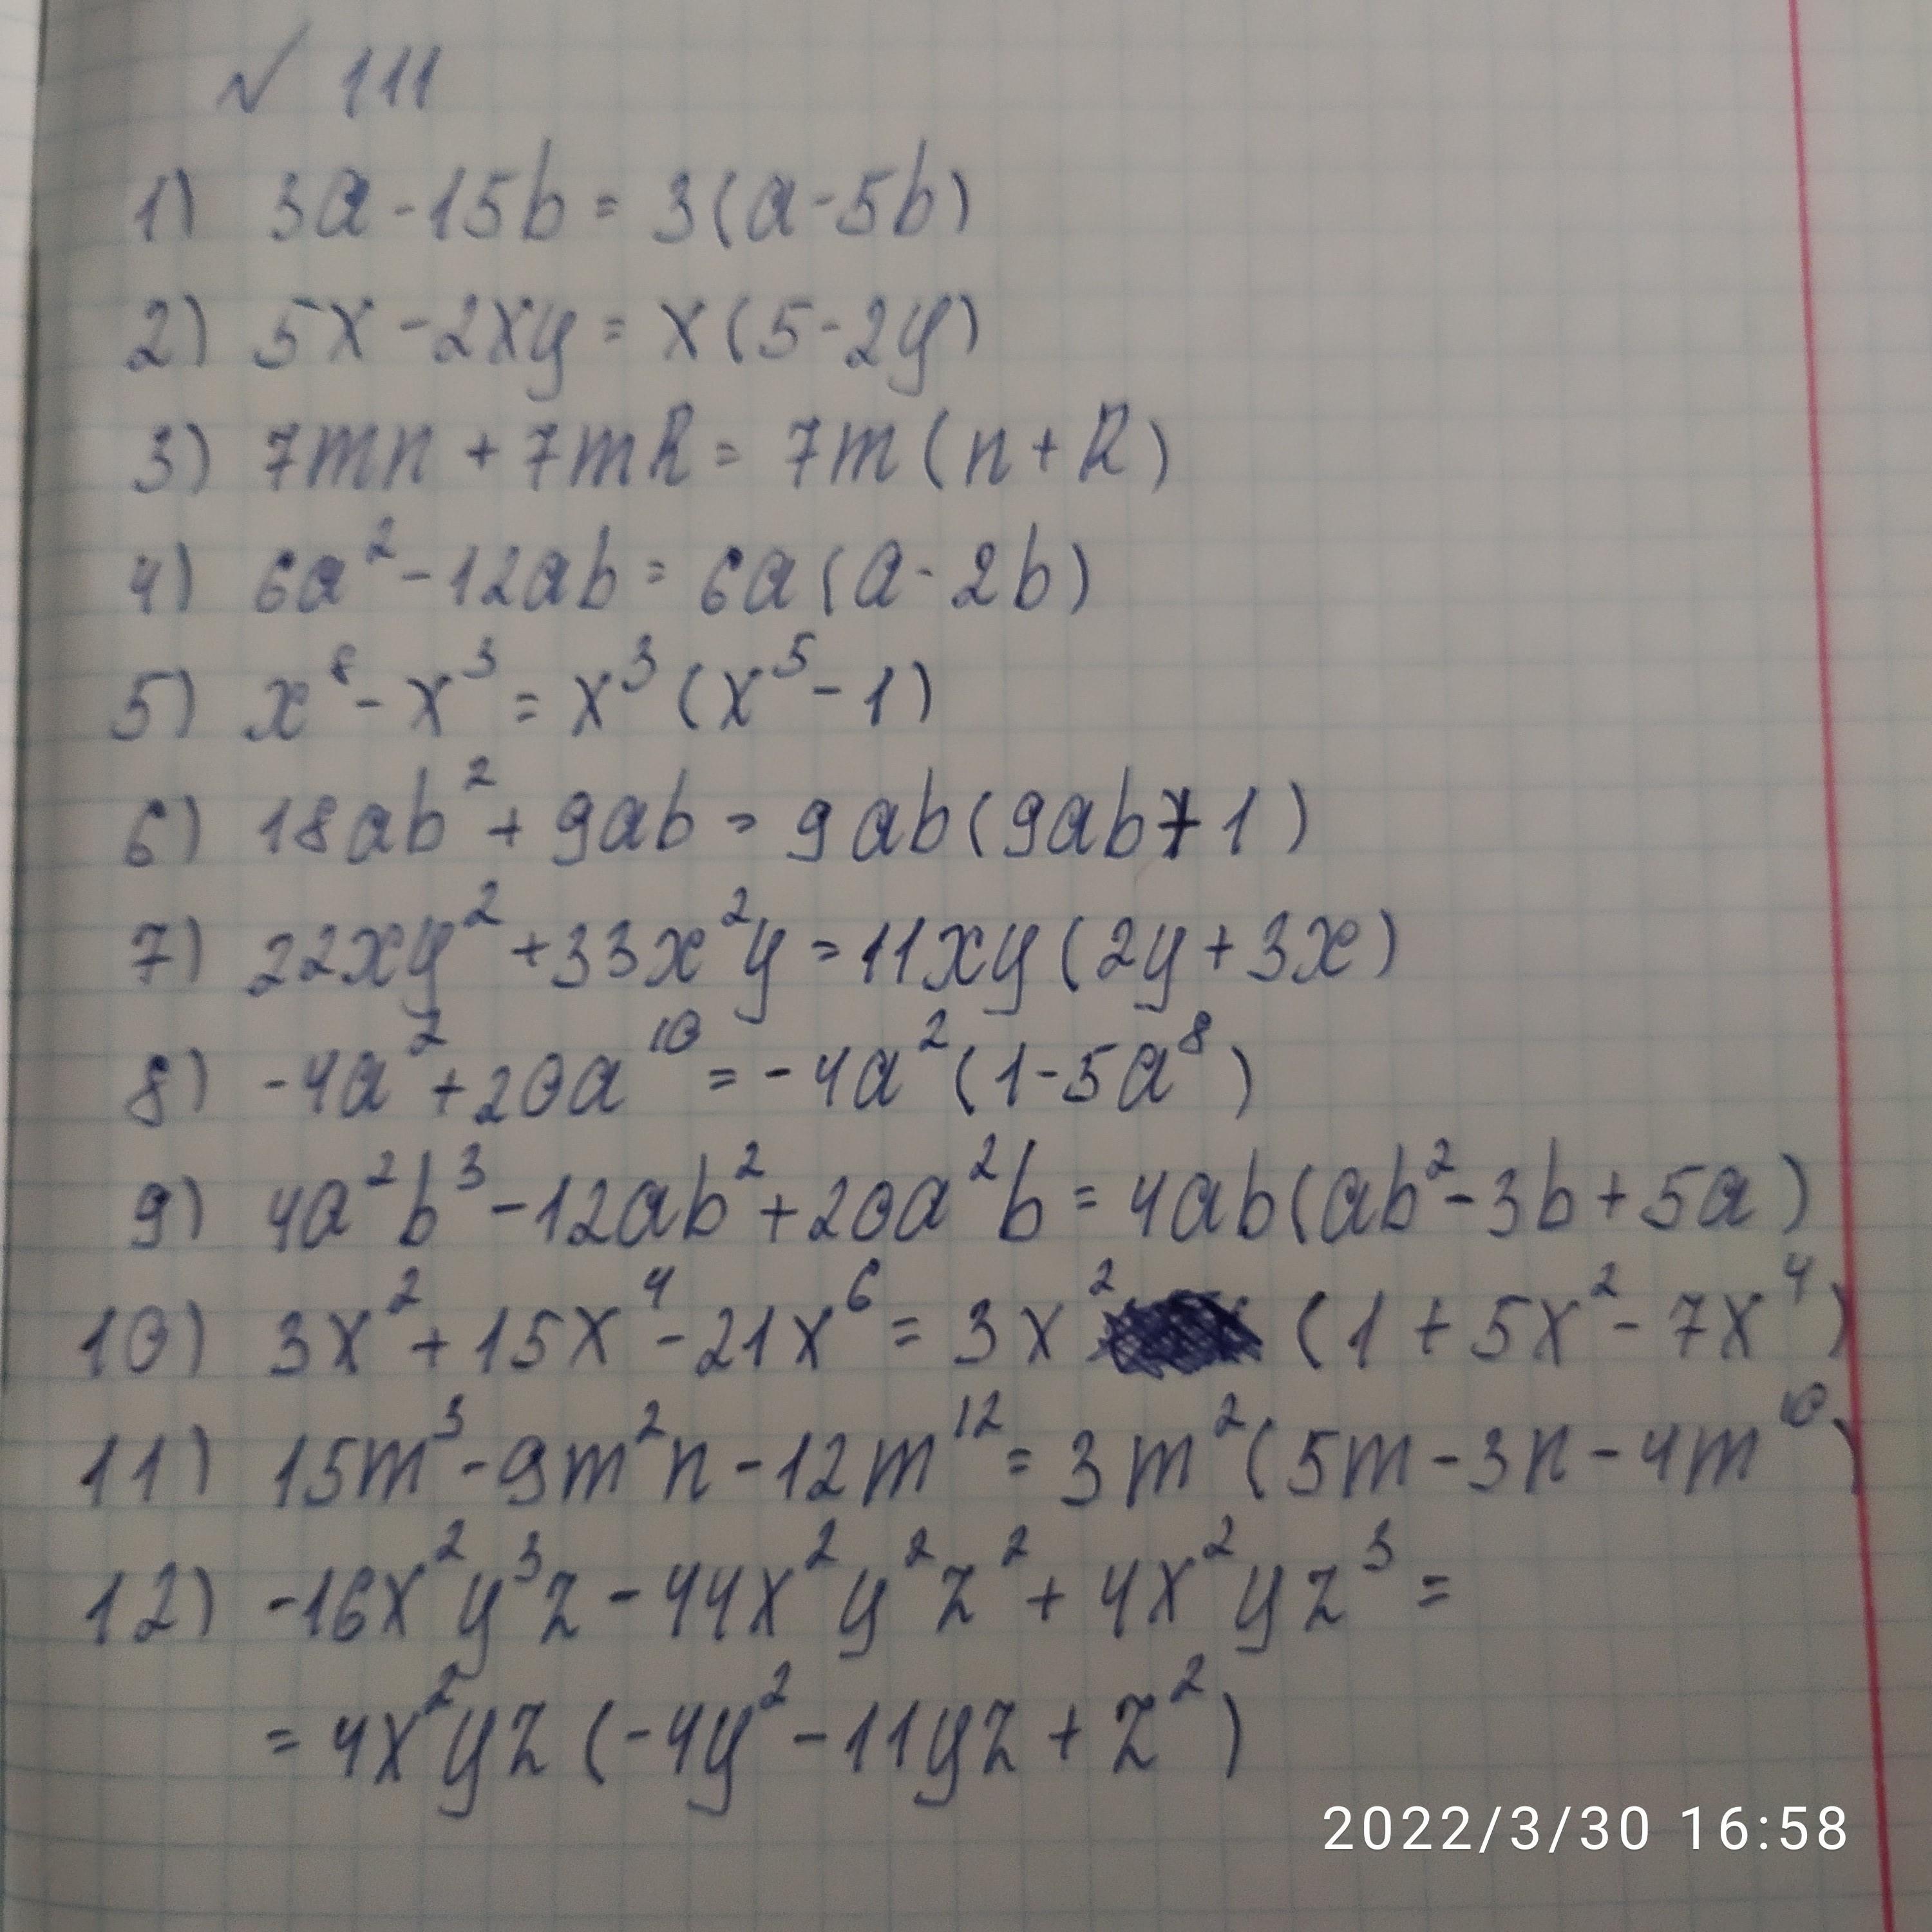 № 111
1) 3a - 15b = 3(a - 5b)
2) 5x - 2xy = x(5 - 2y)
3) 7mn + 7mk = 7m(n + k)
4) 6a² - 12ab = 6a(a - 2b)
5) x⁸ - x³ = x³(x⁵ - 1)
6) 18ab² + 9ab = 9ab(9ab + 1)
7) 22xy² + 33x²y = 11xy(2y + 3x)
8) -4a² + 20a¹⁰ = -4a²(1 - 5a⁸)
9) 4a²b³ - 12ab² + 20a²b = 4ab(ab² - 3b + 5a)
10) 3x² + 15x⁴ - 21x⁶ = 3x² (1 + 5x² - 7x⁴)
11) 15m³ - 9m²n - 12m¹² = 3m²(5m - 3n - 4m¹⁰)
12) -16x²y³z - 44x²y²z² + 4x²yz³ =
= 4x²yz(-4y² - 11yz + z²)
2022/3/30 16:58